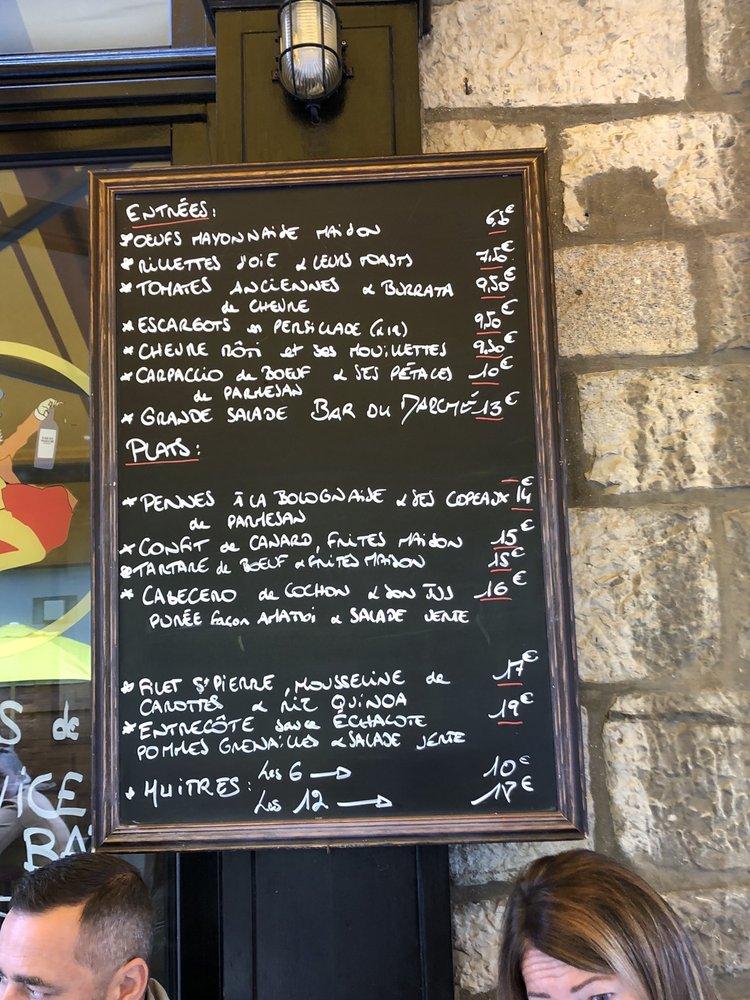 ENTRÉES:
* OEUFS MAYONNAISE MAISON
* RILLETTES D'OIE & LEURS TOASTS 7,50€
* TOMATES ANCIENNES & BURRATA 9,50€
de CHEVRE
* ESCARGOTS en PERSILLADE (x12) 9,50€
* CHEVRE RÔTI et ses MOUILLETTES 9,50€
* CARPACCIO de BOEUF & SES PÉTALES 10€
de PARMESAN
* GRANDE SALADE BAR DU MARCHÉ 13€
PLATS:
* PENNES À LA BOLOGNAISE & SES COPEAUX 14€
de PARMESAN
* CONFIT de CANARD, FRITES MAISON 15€
* TARTARE de BOEUF & FRITES MAISON 15€
* CABECERO de COCHON & son JUS 16€
PURÉE façon & SALADE VERTE
* FILET St PIERRE, MOUSSELINE de 17€
CAROTTES & RIZ QUINOA
* ENTRECÔTE sauce ÉCHALOTE 19€
POMMES GRENAILLES & SALADE VERTE
* HUITRES: Les 6 → 10€
Les 12 → 18€
S de
VICE
BA